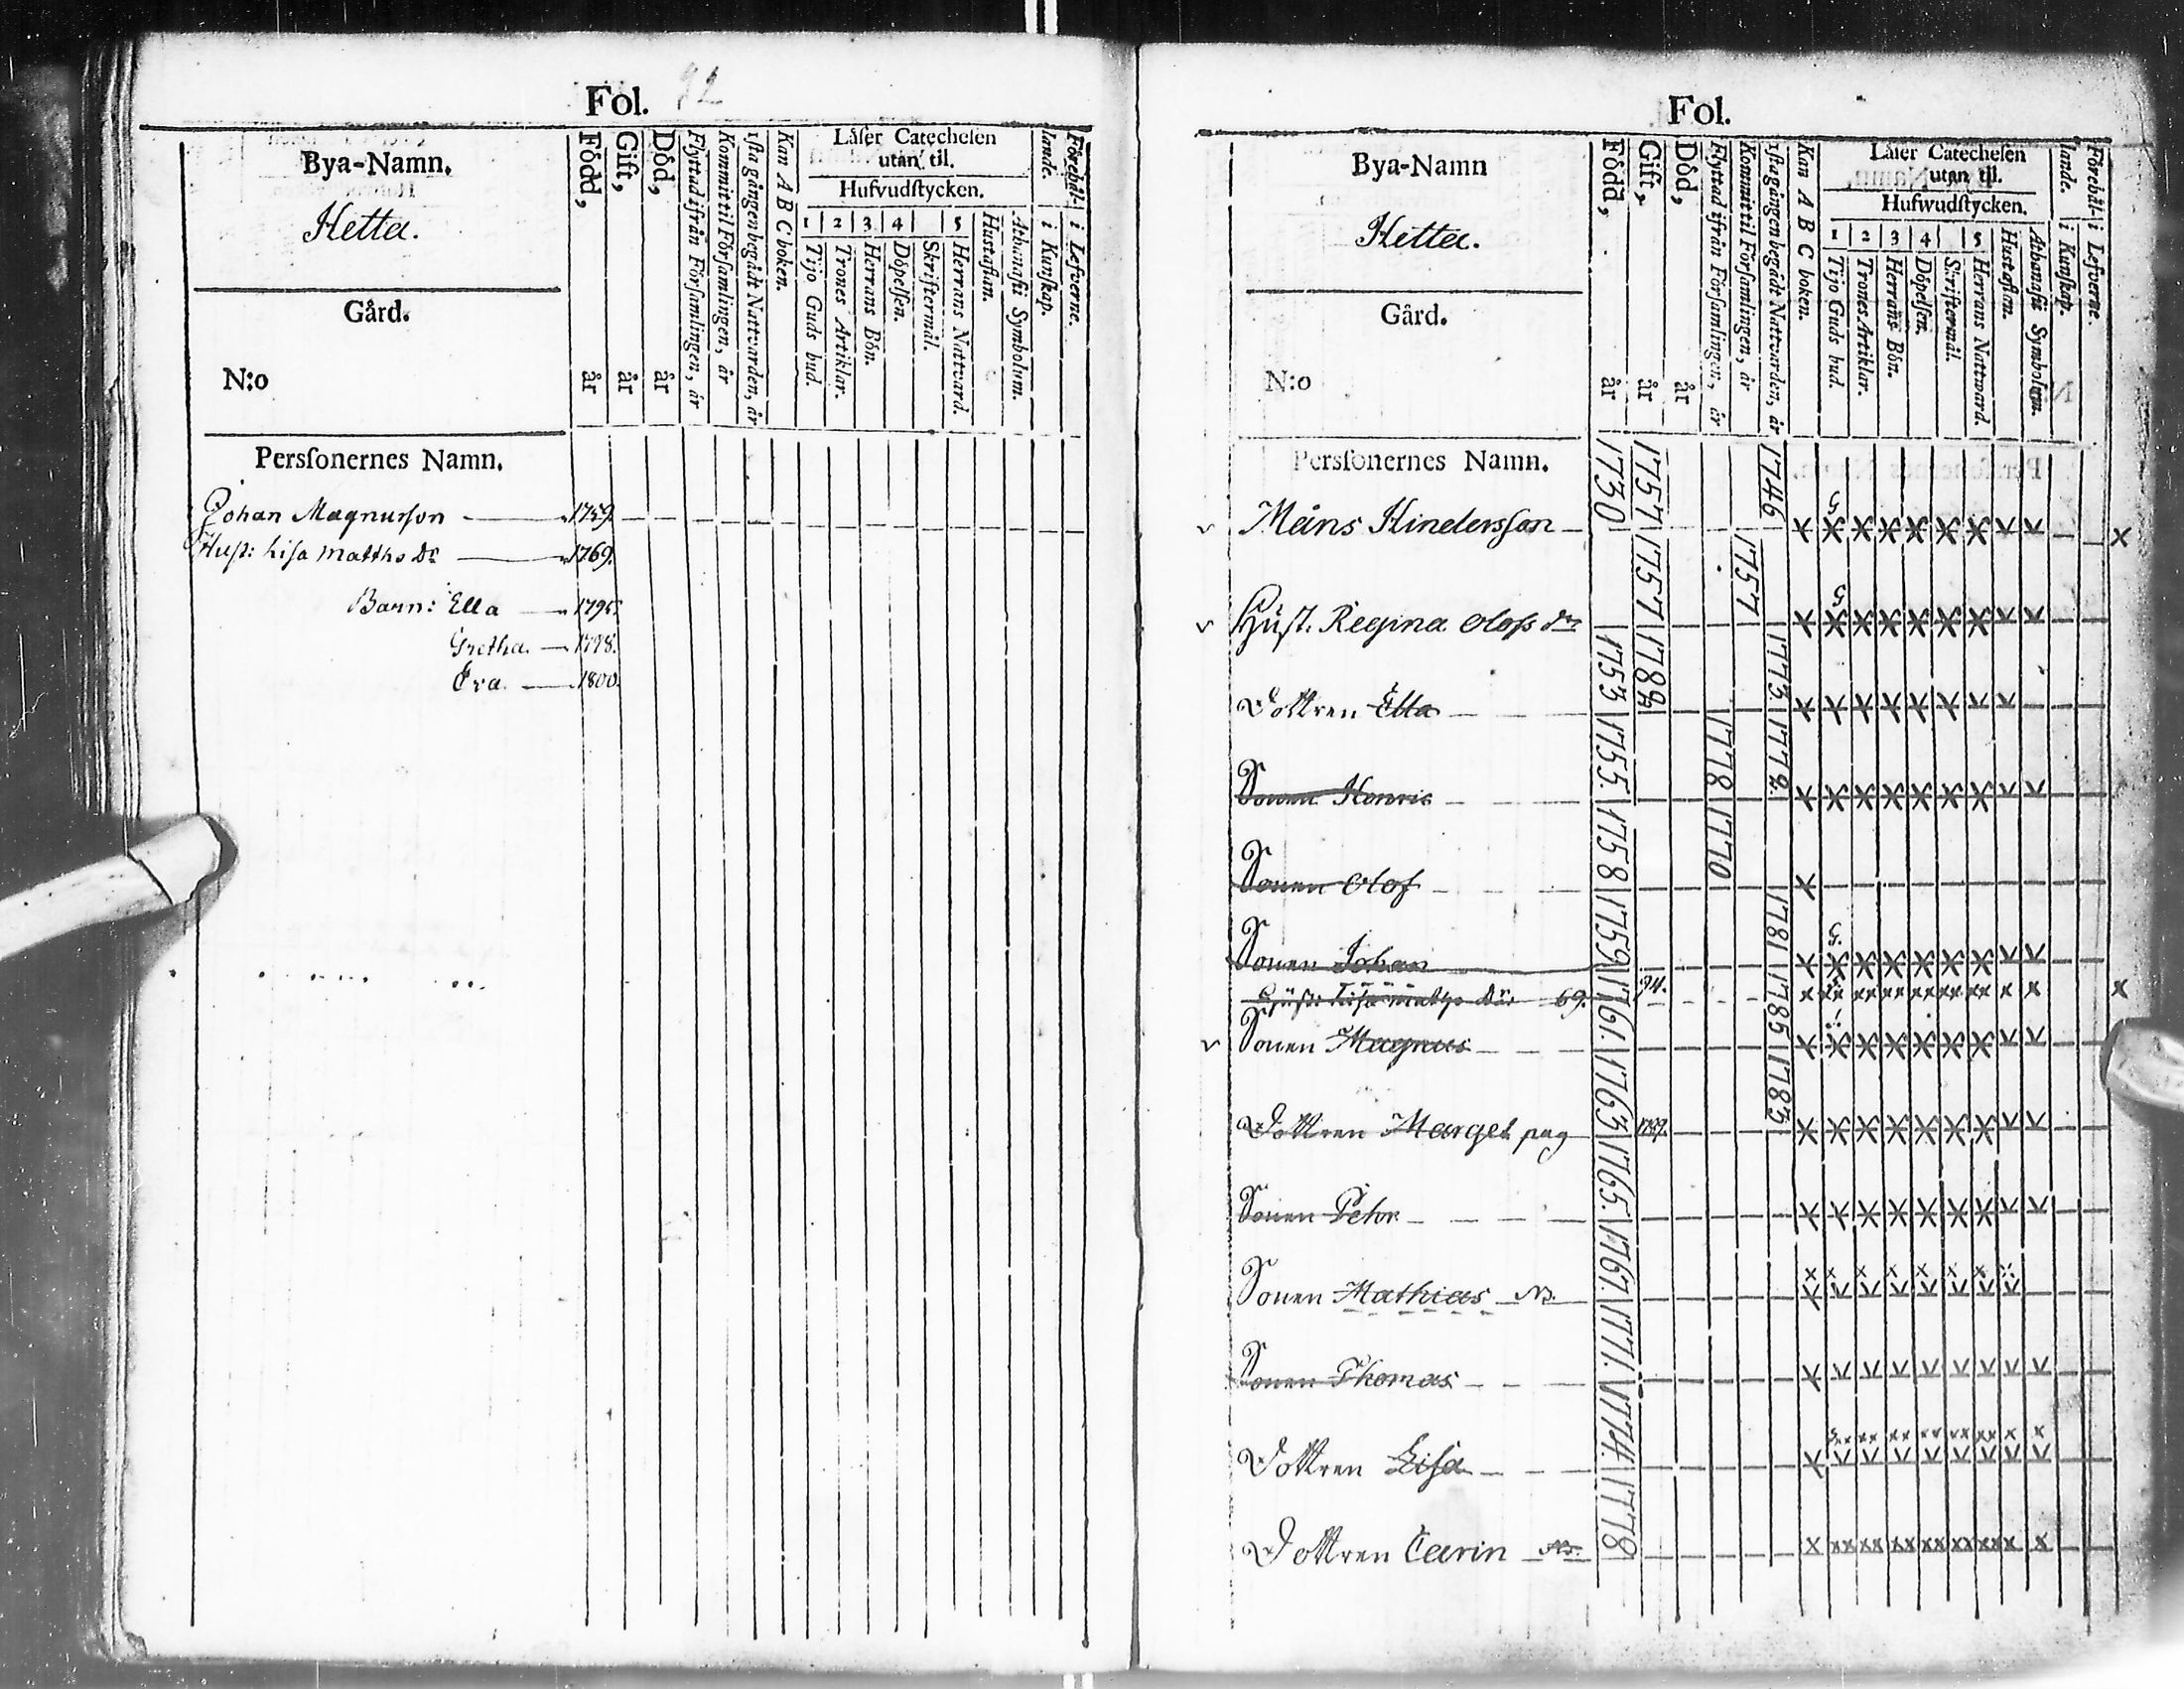 Fol. 92
Bya-Namn.
Hetta.
Gård.
N:o
Född, år
Gift, år
Död, år
Flyttad ifrån Församlingen, år
Kommit til Församlingen, år
1sta gången begådt Nattvarden, år
Kan A B C boken.
Läser Catechesen
utan til.
Hufvudstycken.
1 2 3 4 5
Tijo Guds bud.
Trones Artiklar.
Herrans Bön.
Döpelsen.
Skriftermål.
Herrans Nattvard.
Hustaflan.
Athanasii Symbolum.
Förehål-
lande.
i Kunskap.
i Lefverne.
Personernes Namn.
Johan Magnusson 1759.
Hust: Lisa Matths Dr 1769.
Barn: Ella 1795
Gretha. 1798.
Eva. 1800.
Fol.
Bya-Namn
Hetta.
Gård.
N:o
Född, år
Gift, år
Död, år
Flyttad ifrån Församlingen, år
Kommit til Församlingen, år
1sta gången begådt Nattvarden, år
Kan A B C boken.
Läser Catechesen
utan til.
Hufwudstycken.
1 2 3 4 5
Tijo Guds bud.
Trones Artiklar.
Herrans Bön.
Döpelsen.
Skriftermål.
Herrans Nattward.
Hustaflan.
Athanasii Symbolum.
Förehål-
lande.
i Kunskap.
i Lefverne.
Personernes Namn.
v Måns Hindersson 1730 1757 1746
v Hust. Regina Olofs dr 1757 1757
Dottren Ella 1753 1789 1773
Sonen Henric 1755. 1778 1772.
Sonen Olof 1758 1770
Sonen Johan 1759 1781
Hust: Lisa Maths Dr 69. 94.
v Sonen Magnus 1761. 1785
Dottren Marget pag 1763 1783
Sonen Pehr 1765.
Sonen Mathias 1767.
Sonen Thomas 1771.
Dottren Lisa 1774.
Dottren Carin 1778